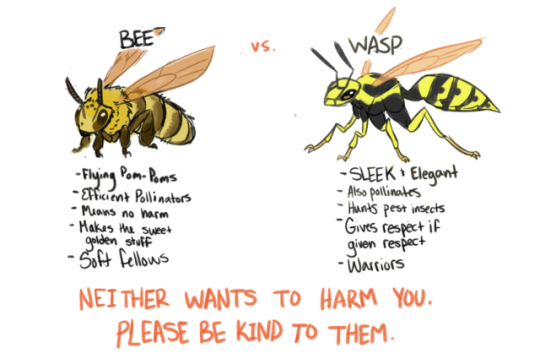 BEE
vs.
WASP
- Flying Pom-Poms
- Efficient Pollinators
- Means no harm
- Makes the sweet
golden stuff
- Soft fellows
- SLEEK & Elegant
- Also pollinates
- Hunts pest insects
- Gives respect if
given respect
- Warriors
NEITHER WANTS TO HARM YOU.
PLEASE BE KIND TO THEM.